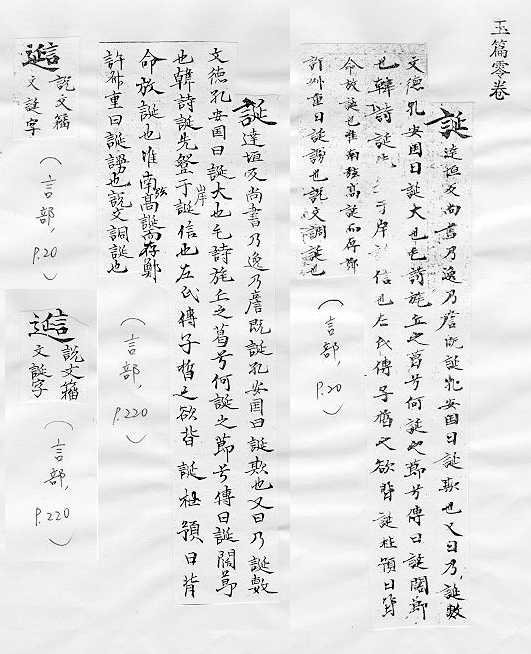 玉篇零卷
誕 達垣反尚書乃逸乃諺既誕孔安国曰誕欺也又曰乃誕敷
文德孔安国曰誕大也毛詩旄丘之葛兮何誕之節兮傳曰誕闊節
也韓詩誕 于岸誕信也左氏傳子晳之欲背誕杜預曰背
命放誕也淮南弦高誕而存鄭
許叔重曰誕謾也說文調誕也
(言部, p.20)
誕 達垣反尚書乃逸乃諺既誕孔安国曰誕欺也又曰乃誕敷
文徳孔安国曰誕大也毛詩旄丘之葛兮何誕之節兮傳曰誕闊節
也韓詩誕先登于岸誕信也左氏傳子晳之欲背誕杜預曰背
命放誕也淮南弦高誕而存鄭
許叔重曰誕謾也說文詞誕也
(言部, p.220)
說文籀
文誕字
(言部, p.20)
說文籀
文誕字
(言部, p.220)